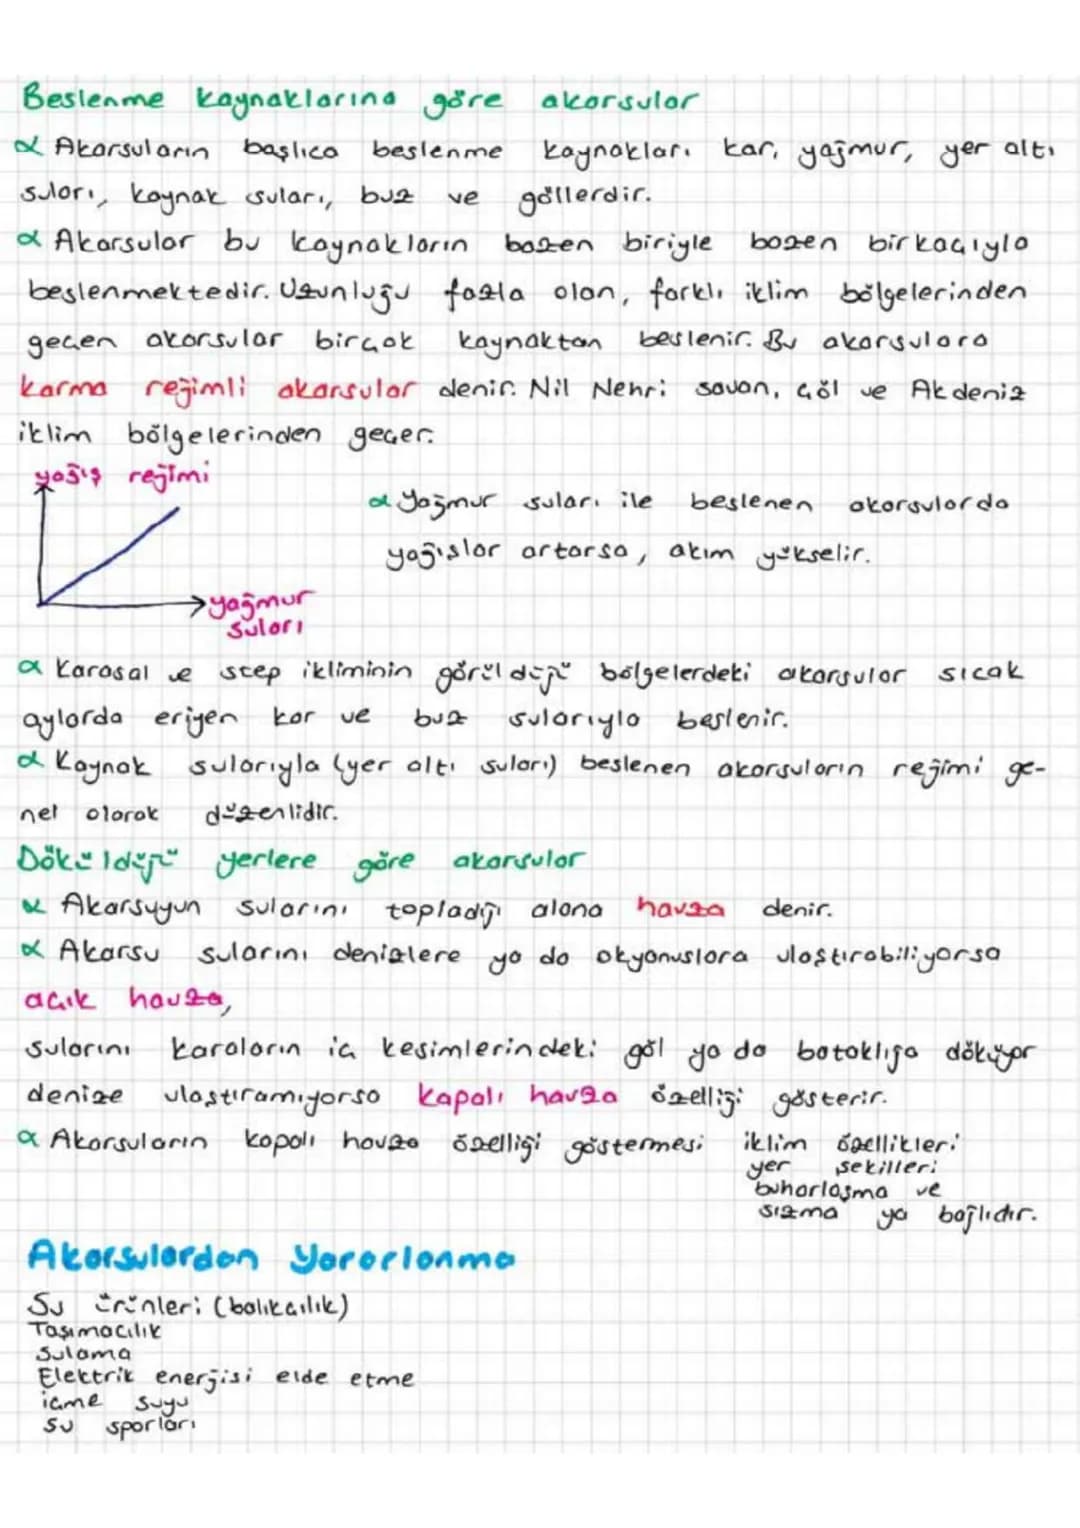 Beslenme kaynaklarına göre akarsular
α Akarsuların başlıca beslenme kaynakları kar, yağmur, yer altı
suları, kaynak suları, buz ve göllerdir.
α Akarsular bu kaynakların bazen biriyle bazen birkaçıyla
beslenmektedir. Uzunluğu fazla olan, farklı iklim bölgelerinden
geçen akarsular birçok kaynaktan beslenir. Bu akarsulara
karma rejimli akarsular denir. Nil Nehri savan, çöl ve Akdeniz
iklim bölgelerinden geçer.
yağış rejimi
α Yağmur suları ile beslenen akarsularda
yağışlar artarsa, akım yükselir.
yağmur
suları
α Karasal ve step ikliminin görüldüğü bölgelerdeki akarsular sıcak
aylarda eriyen kar ve buz sularıyla beslenir.
α Kaynak sularıyla (yer altı suları) beslenen akarsuların rejimi ge-
nel olarak düzenlidir.
Döküldüğü yerlere göre akarsular
α Akarsuyun sularını topladığı alana havza denir.
α Akarsu sularını denizlere ya da okyanuslara ulaştırabiliyorsa
açık havza,
sularını karaların iç kesimlerindeki göl ya da bataklığa döküyor
denize ulaştıramıyorsa kapalı havza özelliği gösterir.
α Akarsuların kapalı havza özelliği göstermesi iklim özellikleri
yer şekilleri
buharlaşma ve
sızma ya bağlıdır.
Akarsulardan Yararlanma
Su ürünleri (balıkçılık)
Taşımacılık
Sulama
Elektrik enerjisi elde etme
içme suyu
su sporları